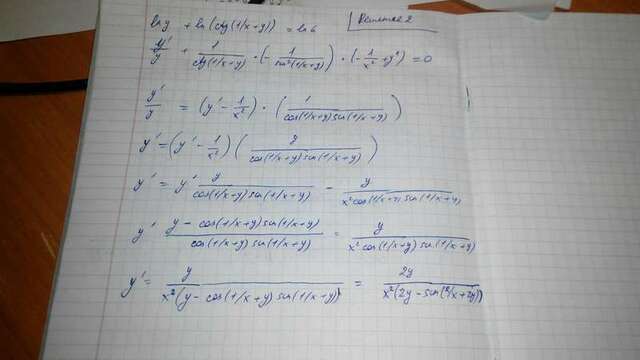 ln y + ln(ctg(1/x+y)) = ln 6
Решение 2
y'/y + 1/ctg(1/x+y) · (-1/sin²(1/x+y)) · (-1/x² + y') = 0
y'/y = (y' - 1/x²) · (1/cos(1/x+y)sin(1/x+y))
y' = (y' - 1/x²)(y/cos(1/x+y)sin(1/x+y))
y' = y' y/cos(1/x+y)sin(1/x+y) - y/x²cos(1/x+y)sin(1/x+y)
y' y - cos(1/x+y)sin(1/x+y)/cos(1/x+y)sin(1/x+y) = y/x²cos(1/x+y)sin(1/x+y)
y' = y/x²(y - cos(1/x+y)sin(1/x+y)) = 2y/x²(2y - sin(2/x+2y))